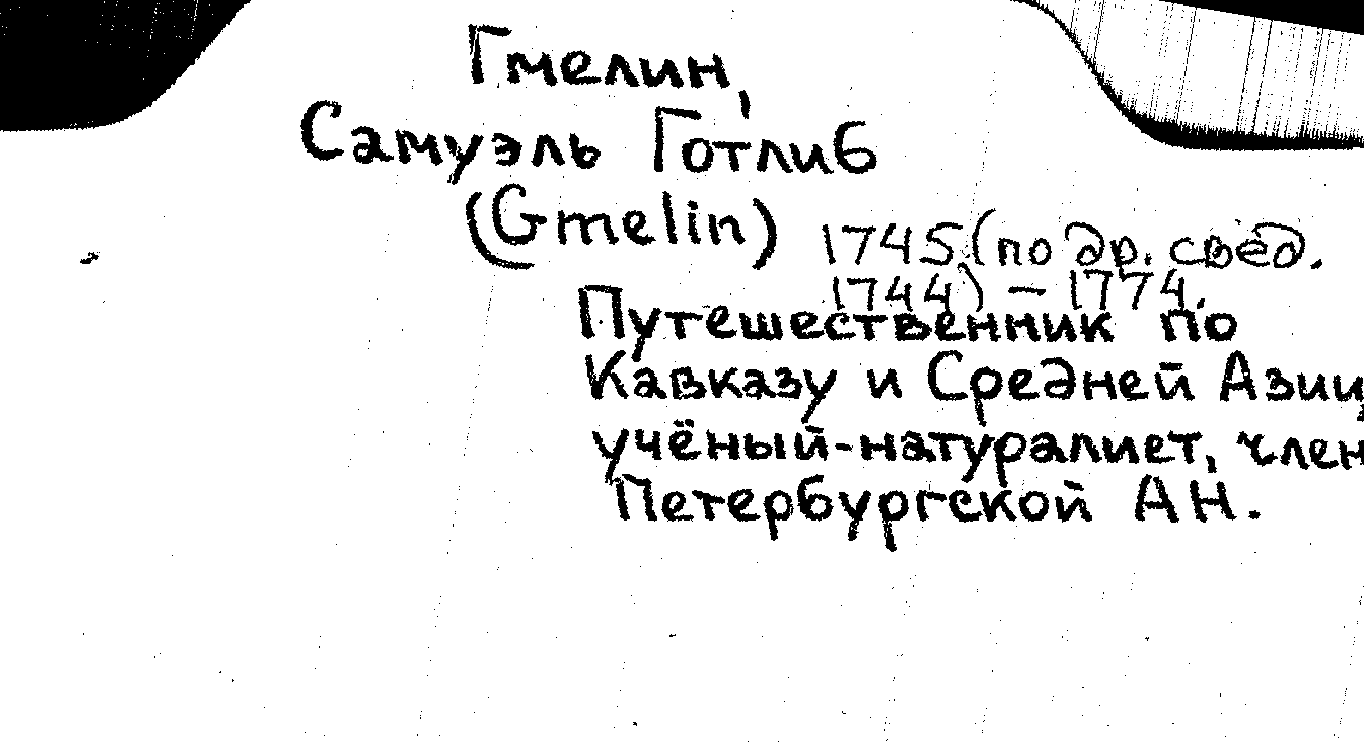 Гмелин,
Самуэль Готлиб
(Gmelin) 1745 (по др. свед.
1744) – 1774.
Путешественник по
Кавказу и Средней Азии,
учёный-натуралист, член
Петербургской АН.